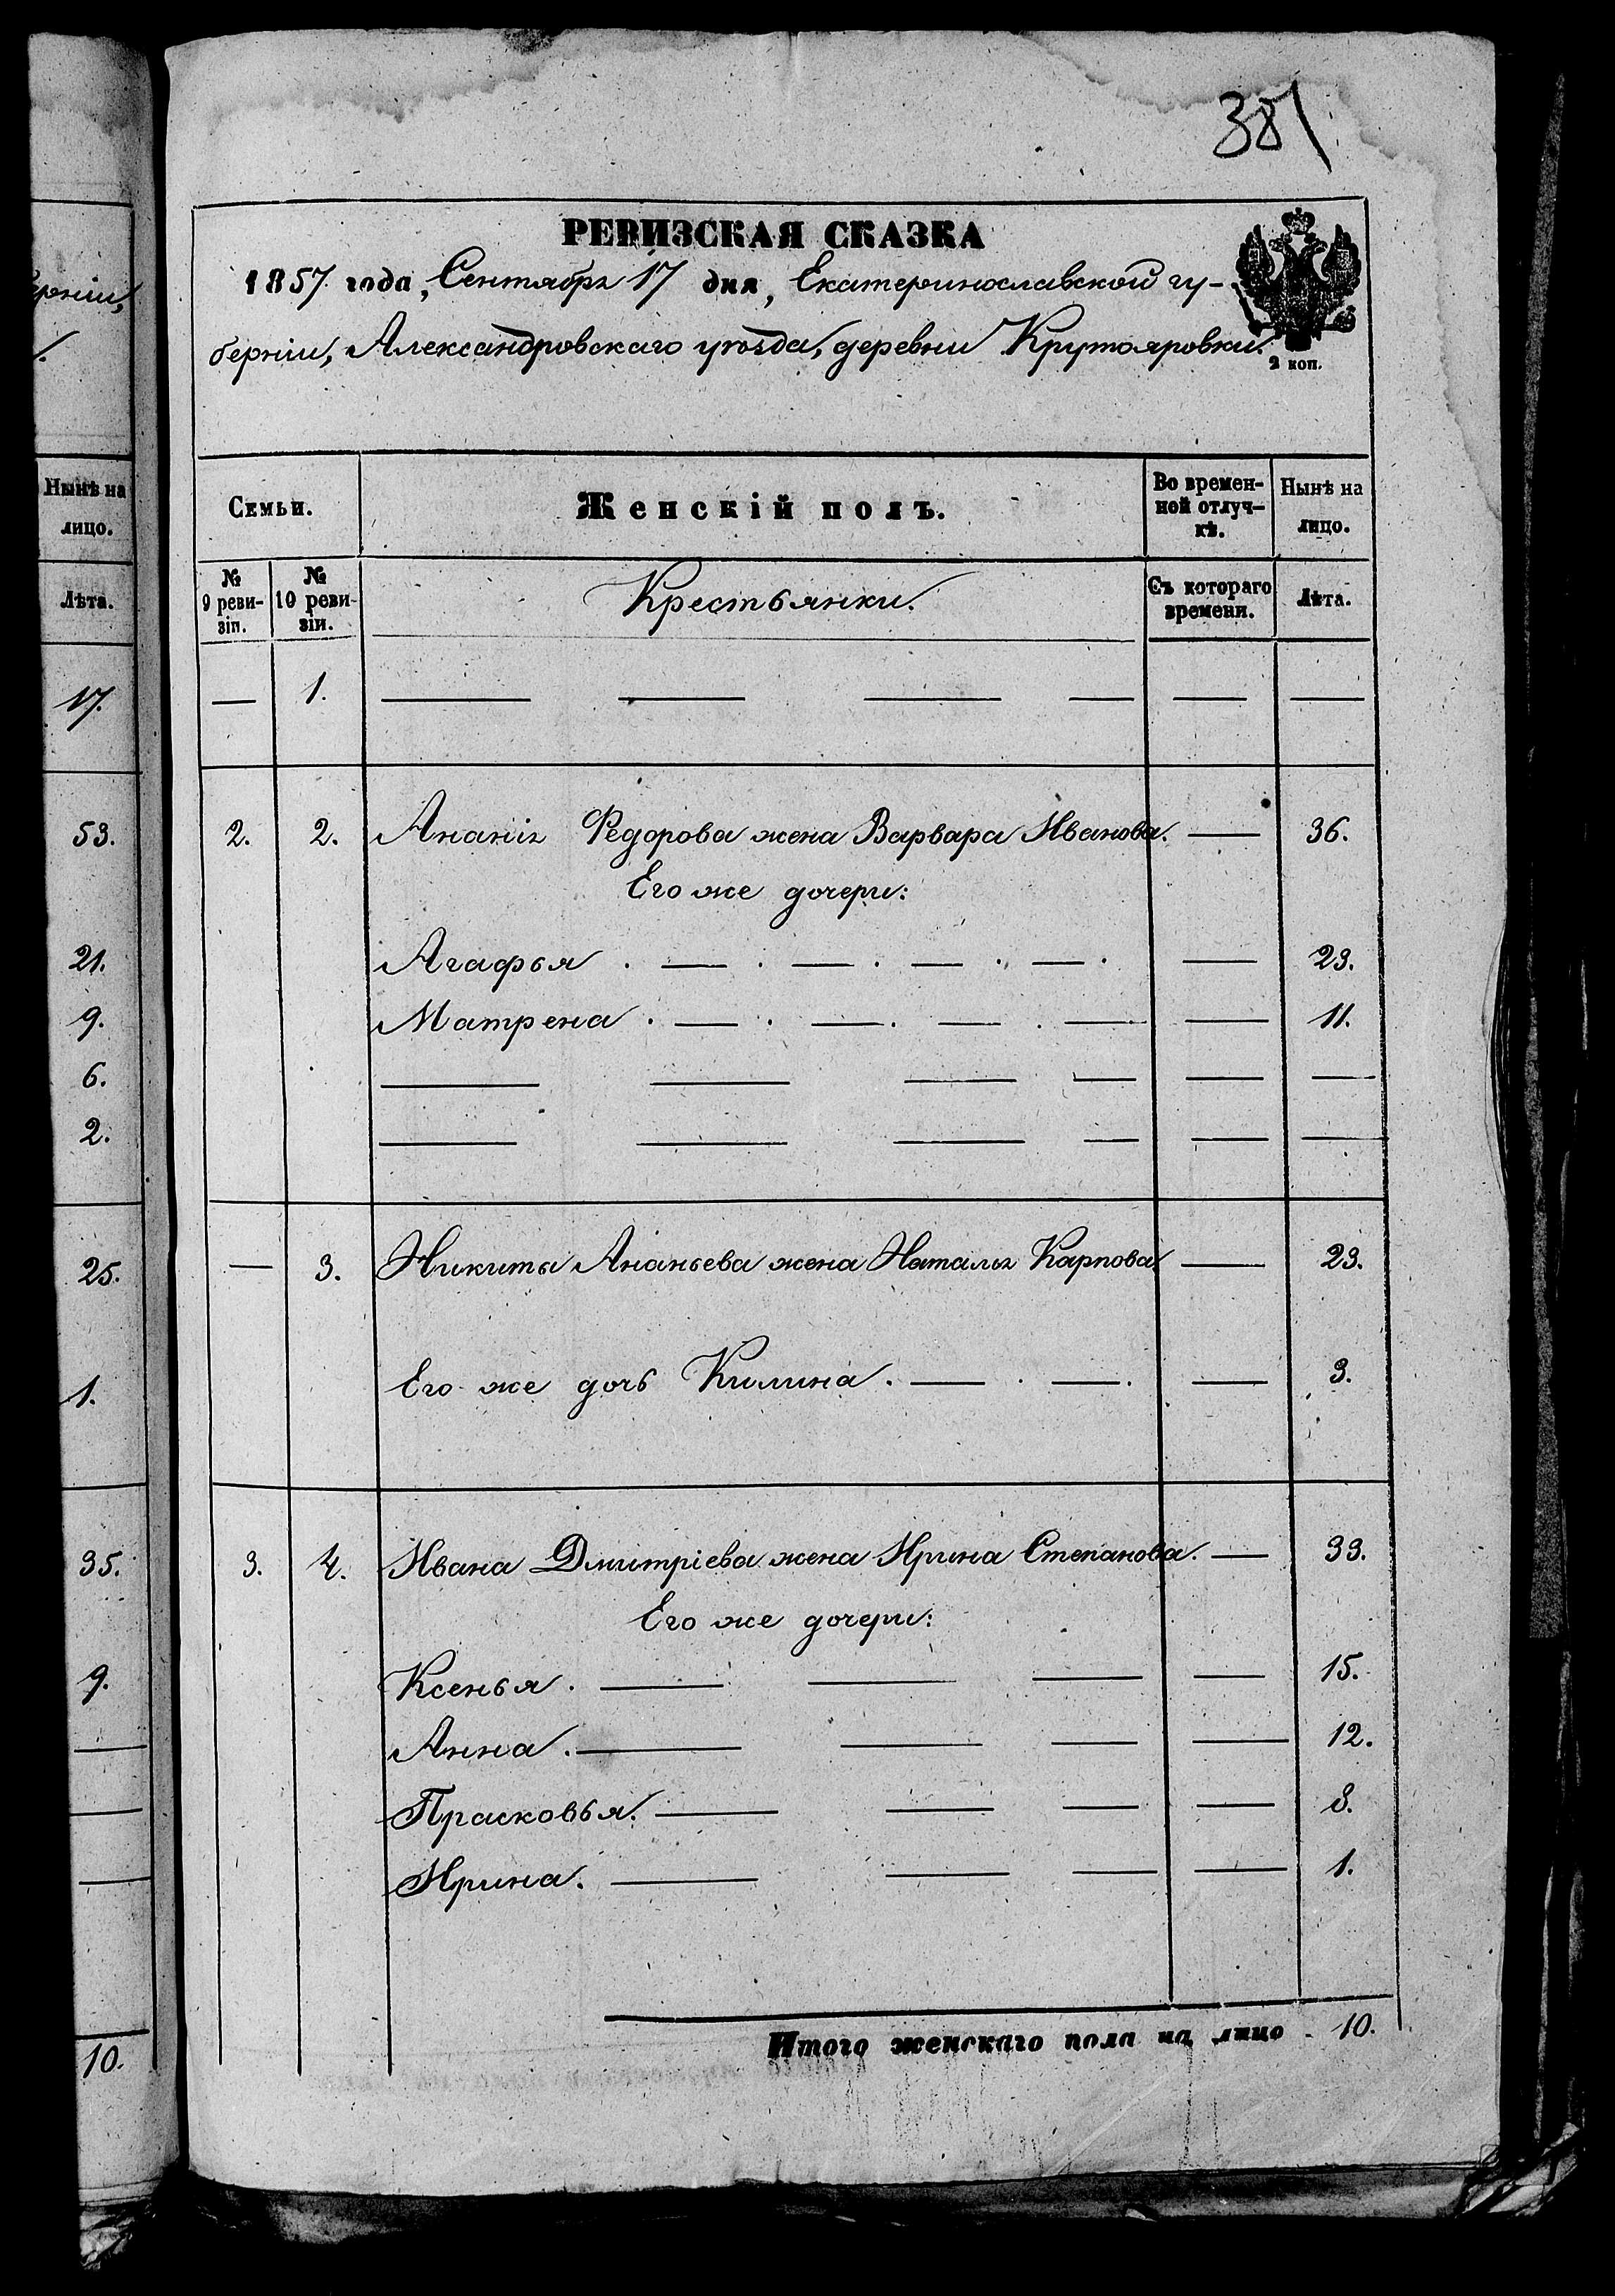 381
РЕВИЗСКАЯ СКАЗКА
1857 года, Сентября 17 дня, Екатеринославской гу-
берніи, Александровскаго уѣзда, деревни Крутояровки.
2 коп.
Семьи.
Женскій полъ.
Во времен-
ной отлуч-
кѣ.
Нынѣ на
лицо.
№
9 реви-
зіи.
№
10 реви-
зіи.
Крестьянки.
Съ котораго
времени.
Лѣта.
— 1. — — — — — —
2. 2. Ананія Федорова жена Варвара Иванова. — 36.
Его же дочери:
Агафья . — . — . — . — . — 23.
Матрена . — . — . — . — — 11.
— — — — — —
— — — — — —
— 3. Никиты Ананьева жена Наталья Карпова. — 23.
Его же дочь Килина . — . — . — 3.
3. 4. Ивана Дмитріева жена Ирина Степанова. — 33.
Его же дочери:
Ксенья . — — — — 15.
Анна . — — — — 12.
Прасковья. — — — — 8.
Ирина. — — — — 1.
Итого женскаго пола на лицо - 10.
ерніи,
Нынѣ на
лицо.
Лѣта.
17.
53.
21.
9.
6.
2.
25.
1.
35.
9.
—
—
—
10.